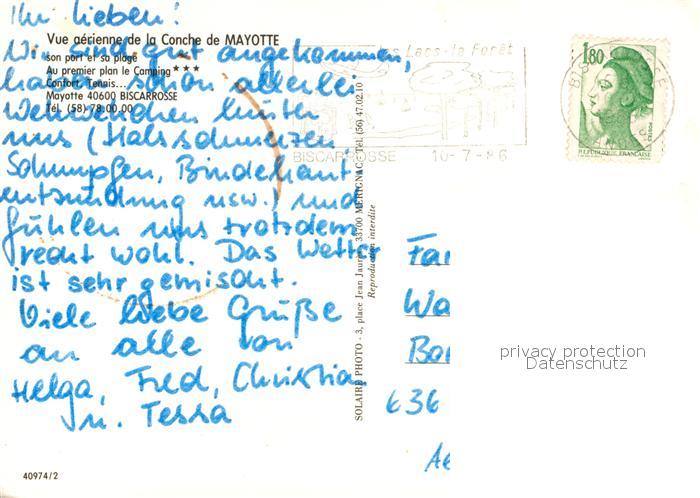 Ihr Lieben!
Vue aérienne de la Conche de MAYOTTE
son port et sa plage
Au premier plan le Camping ***
Confort, Tennis...
Mayotte 40600 BISCARROSSE
Tél. (58) 78.00.00
Wir sind gut angekommen,
haben schon allerlei
Wehwehchen hinter
uns (Halsschmerzen
Schnupfen, Bindehaut-
entzündung usw.) und
fühlen uns trotzdem
recht wohl. Das Wetter
ist sehr gemischt.
Viele liebe Grüße
an alle von
Helga, Fred, Christian
u. Tessa
40974/2
SOLAIRE PHOTO - 3, place Jean Jaurès, 33700 MERIGNAC - Tél. (56) 47.02.10
Reproduction interdite
Lacs - la Forêt
BISCARROSSE 10-7-86
1,80
POSTES
REPUBLIQUE FRANCAISE
Fa
Wa
636
privacy protection
Datenschutz